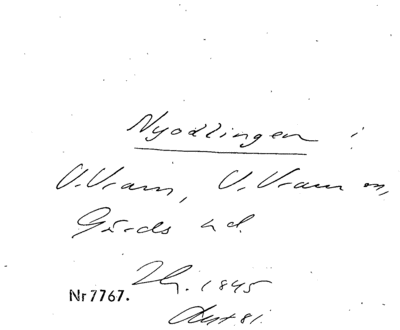 Nyodlingen i
V. Vram, V. Vram sn,
Gärds hd.
1845
Nr 7767.
81.